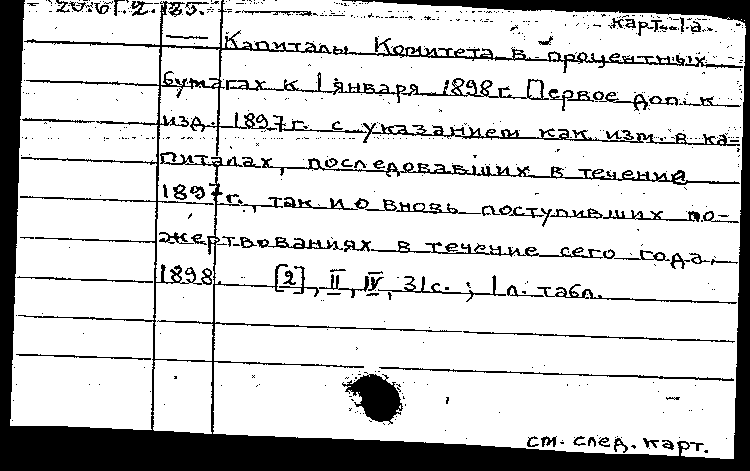 20.61.2.185.
карт. 1а.
— Капиталы Комитета в процентных
бумагах к 1 января 1898 г. Первое доп. к
изд. 1897 г. с указанием как изм. в ка-
питалах, последовавших в течение
1897 г., так и о вновь поступивших по-
жертвованиях в течение сего года.
1898. [2], II, IV, 31 с.; 1 л. табл.
см. след. карт.